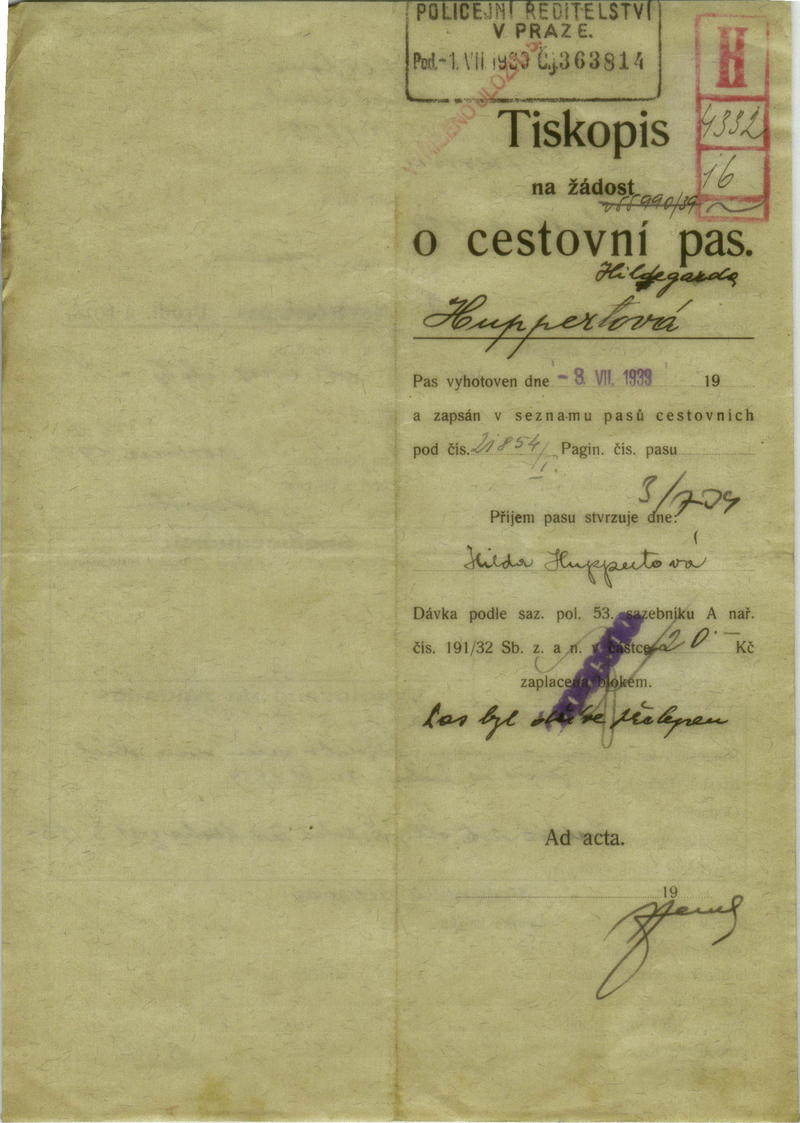 POLICEJNÍ ŘEDITELSTVÍ
V PRAZE.
Pod. -1. VII 1939 Čj. 363814
H
4332
16
Tiskopis
na žádost
o cestovní pas.
Hildegarda
Huppertová
Pas vyhotoven dne - 3. VII. 1939 19
a zapsán v seznamu pasů cestovních
pod čís. 21854/I. Pagin. čís. pasu
3/7 39
Příjem pasu stvrzuje dne:
Hilda Huppertová
Dávka podle saz. pol. 53. sazebníku A nař.
čís. 191/32 Sb. z. a n. v částce 20.- Kč
zaplacena blokem.
Pas byl
Ad acta.
19